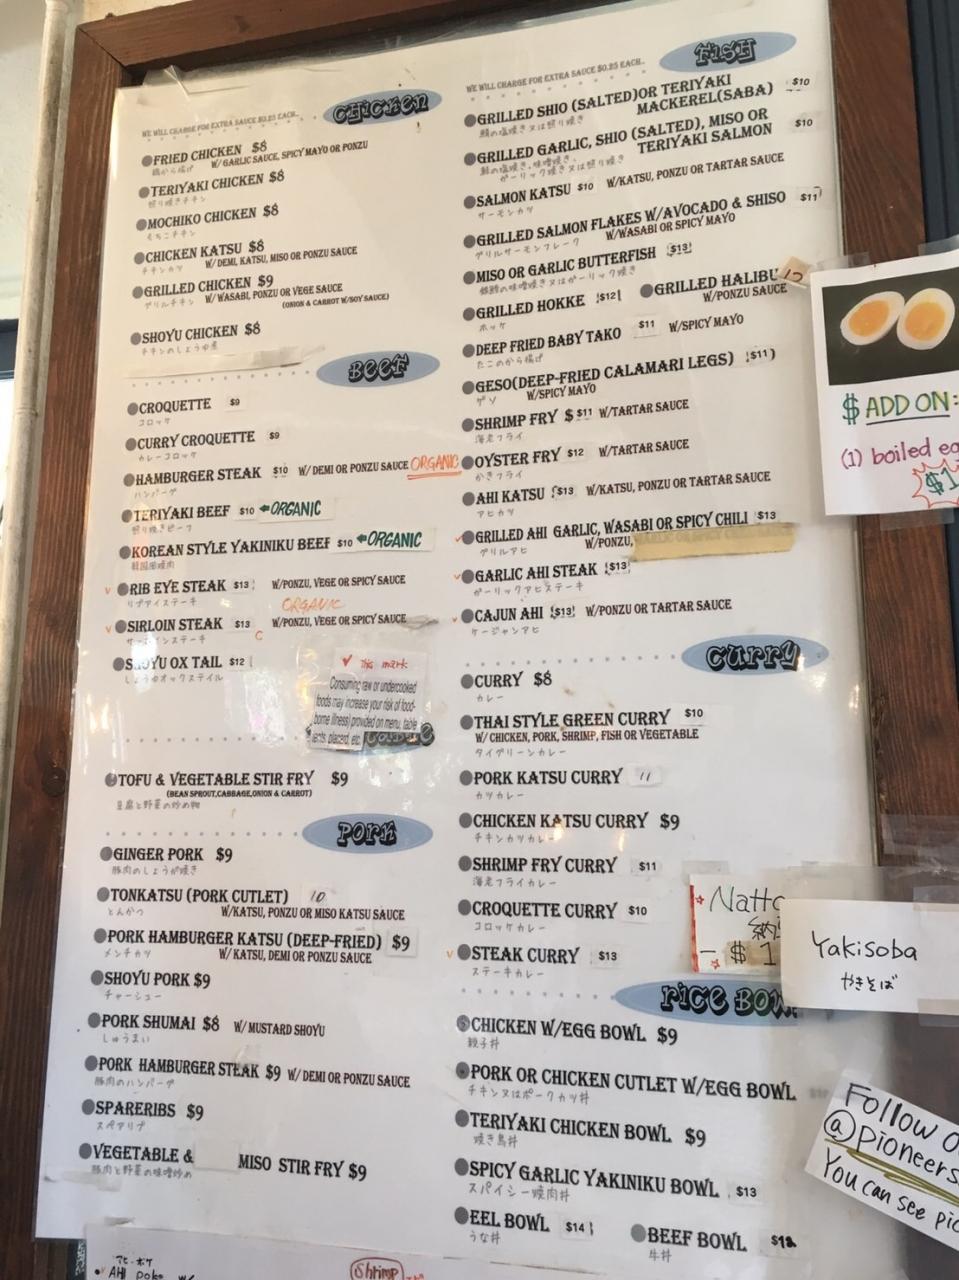 CHICKEN
WE WILL CHARGE FOR EXTRA SAUCE $0.25 EACH..
FRIED CHICKEN $8
鶏から揚げ W/ GARLIC SAUCE, SPICY MAYO OR PONZU
TERIYAKI CHICKEN $8
照り焼きチキン
MOCHIKO CHICKEN $8
もちこチキン
CHICKEN KATSU $8
チキンカツ W/ DEMI, KATSU, MISO OR PONZU SAUCE
GRILLED CHICKEN $9
グリルチキン W/ WASABI, PONZU OR VEGE SAUCE
(ONION & CARROT W/SOY SAUCE)
SHOYU CHICKEN $8
チキンのしょうゆ煮
BEEF
CROQUETTE $9
コロッケ
CURRY CROQUETTE $9
カレーコロッケ
HAMBURGER STEAK $10 W/ DEMI OR PONZU SAUCE ORGANIC
ハンバーグ
TERIYAKI BEEF $10 ←ORGANIC
照り焼きビーフ
KOREAN STYLE YAKINIKU BEEF $10 ←ORGANIC
韓国風焼肉
RIB EYE STEAK $13 W/PONZU, VEGE OR SPICY SAUCE
リブアイステーキ
ORGANIC
SIRLOIN STEAK $13 W/PONZU, VEGE OR SPICY SAUCE
サーロインステーキ
SHOYU OX TAIL $12
しょうゆオックステイル
✓ This mark
Consuming raw or undercooked
foods may increase your risk of food-
borne illness) provided on menu, table
tents, placed, etc.
TOFU & VEGETABLE STIR FRY $9
(BEAN SPROUT,CABBAGE,ONION & CARROT)
豆腐と野菜の炒め物
PORK
GINGER PORK $9
豚肉のしょうが焼き
TONKATSU (PORK CUTLET) 10
とんかつ W/KATSU, PONZU OR MISO KATSU SAUCE
PORK HAMBURGER KATSU (DEEP-FRIED) $9
メンチカツ W/ KATSU, DEMI OR PONZU SAUCE
SHOYU PORK $9
チャーシュー
PORK SHUMAI $8 W/ MUSTARD SHOYU
しゅうまい
PORK HAMBURGER STEAK $9 W/ DEMI OR PONZU SAUCE
豚肉のハンバーグ
SPARERIBS $9
スペアリブ
VEGETABLE & MISO STIR FRY $9
豚肉と野菜の味噌炒め
アヒ・ポケ
AHI Poke
Shrimp
FISH
WE WILL CHARGE FOR EXTRA SAUCE $0.25 EACH..
GRILLED SHIO (SALTED)OR TERIYAKI $10
鯖の塩焼き又は照り焼き MACKEREL(SABA)
GRILLED GARLIC, SHIO (SALTED), MISO OR $10
鮭の塩焼き、味噌焼き、 TERIYAKI SALMON
ガーリック焼き又は照り焼き
SALMON KATSU $10 W/KATSU, PONZU OR TARTAR SAUCE
サーモンカツ
GRILLED SALMON FLAKES W/AVOCADO & SHISO $11
グリルサーモンフレーク W/WASABI OR SPICY MAYO
MISO OR GARLIC BUTTERFISH $13
銀鱈の味噌焼き又はガーリック焼き
GRILLED HOKKE $12 GRILLED HALIBU
ホッケ W/PONZU SAUCE
DEEP FRIED BABY TAKO $11 W/SPICY MAYO
たこのから揚げ
GESO(DEEP-FRIED CALAMARI LEGS) $11
ゲソ W/SPICY MAYO
SHRIMP FRY $ $11 W/TARTAR SAUCE
海老フライ
OYSTER FRY $12 W/TARTAR SAUCE
かきフライ
AHI KATSU $13 W/KATSU, PONZU OR TARTAR SAUCE
アヒカツ
GRILLED AHI GARLIC, WASABI OR SPICY CHILI $13
グリルアヒ W/PONZU,
GARLIC AHI STEAK $13
ガーリックアヒステーキ
CAJUN AHI $13 W/PONZU OR TARTAR SAUCE
ケージャンアヒ
CURRY
CURRY $8
カレー
THAI STYLE GREEN CURRY $10
W/ CHICKEN, PORK, SHRIMP, FISH OR VEGETABLE
タイグリーンカレー
PORK KATSU CURRY 11
カツカレー
CHICKEN KATSU CURRY $9
チキンカツカレー
SHRIMP FRY CURRY $11
海老フライカレー
CROQUETTE CURRY $10
コロッケカレー
STEAK CURRY $13
ステーキカレー
RICE BOW
CHICKEN W/EGG BOWL $9
親子丼
PORK OR CHICKEN CUTLET W/EGG BOWL
チキン又はポークカツ丼
TERIYAKI CHICKEN BOWL $9
焼き鳥丼
SPICY GARLIC YAKINIKU BOWL $13
スパイシー焼肉丼
EEL BOWL $14 BEEF BOWL
うな丼 牛丼
$ ADD ON:
(1) boiled
$1
Natto
納
$ 1
Yakisoba
やきそば
Follow
@pioneers
You can see pic